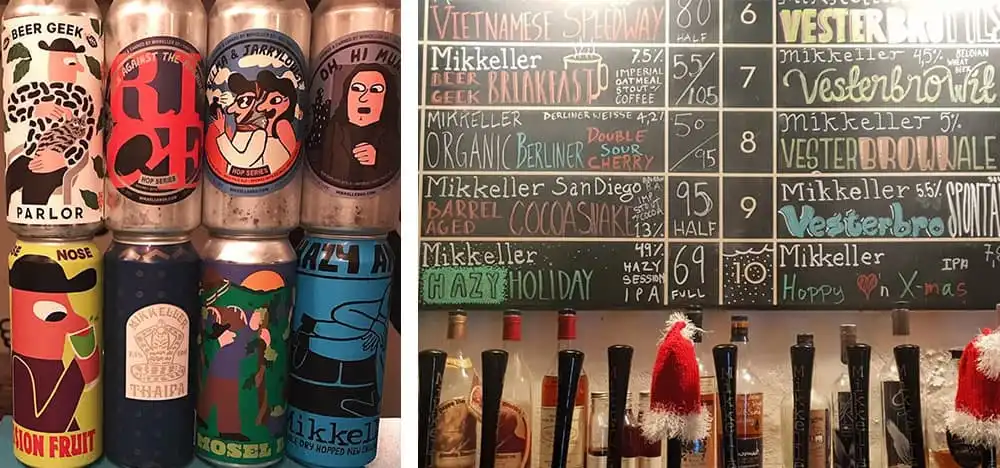 BEER GEEK
PARLOR
AGAINST THE
RICE
HOP SERIES
& JARRYLO
HOP SERIES
OH, HI
NOSE
SION FRUIT
MIKKELLER
THAIPA
MOSEL
HAZY
Mikkeller
DRY HOPPED NEW
VIETNAMESE SPEEDWAY
80
HALF
Mikkeller 7.5%
BEER GEEK BREAKFAST
IMPERIAL
OATMEAL
STOUT
COFFEE
55/105
MIKKELLER BERLINER WEISSE 4,2%
ORGANIC BERLINER DOUBLE SOUR CHERRY
50/95
Mikkeller SanDiego
BARREL AGED COCOASNAKE
IMP
STOUT
COCOA
13%
95
HALF
Mikkeller 4.9%
HAZY HOLIDAY
HAZY
SESSION
IPA
69
FULL
6
VESTERBRO PILS
7
Mikkeller 4,5% BELGIAN
WHEAT
BEER
Vesterbro Wit
8
Mikkeller 5%
VESTERBROWN ALE
9
Mikkeller 5.5%
Vesterbro SPONTA
10
Mikkeller IPA
Hoppy ❤'n X-mas